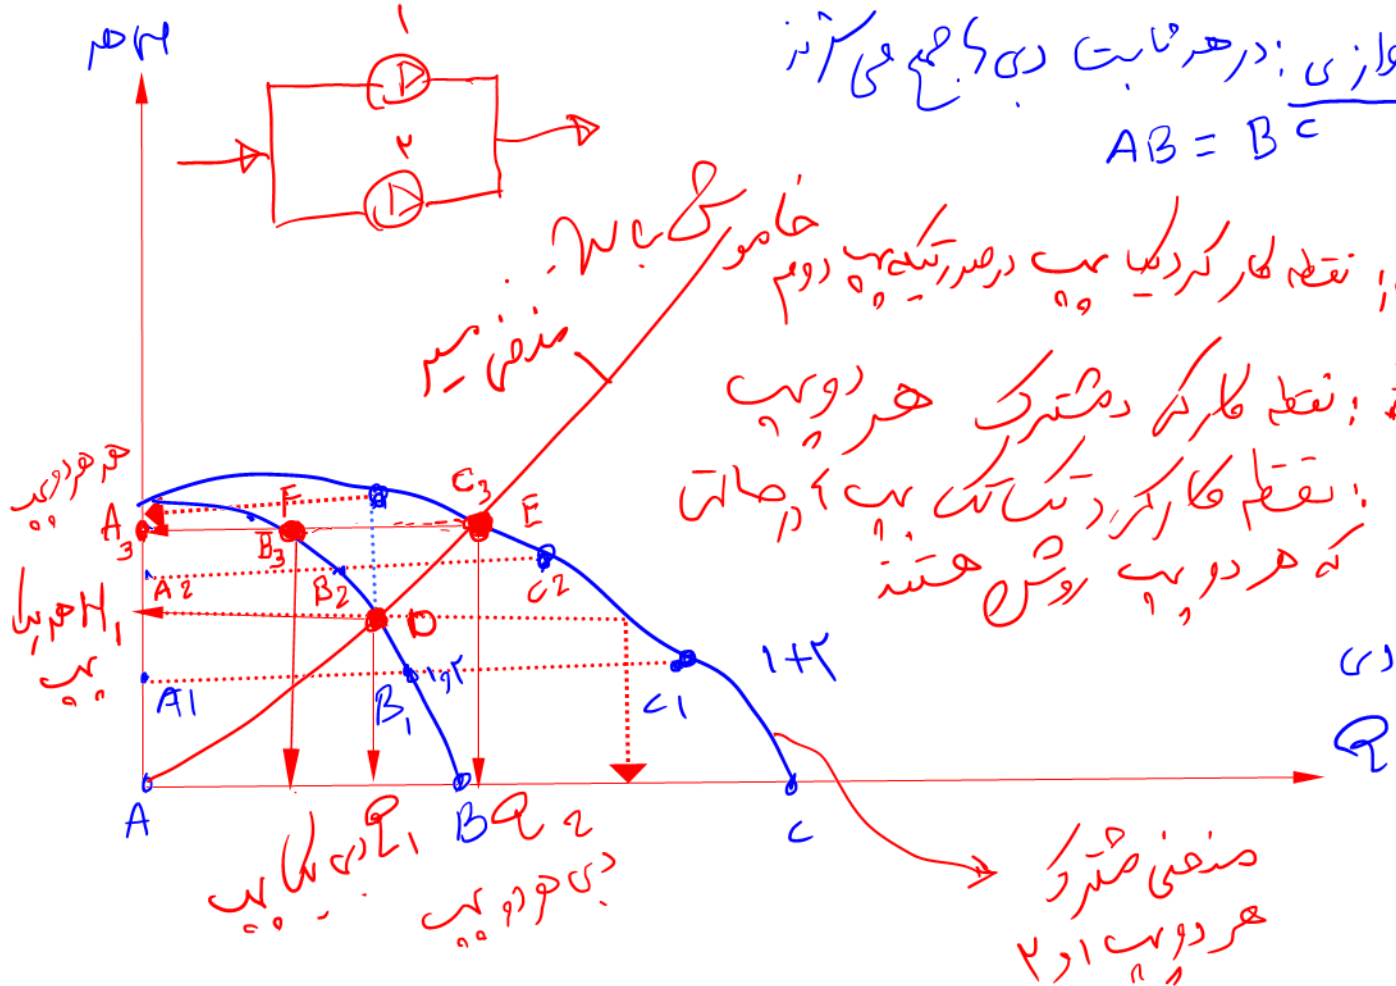 هد پمپ
۱
۲
موازی : در هد ثابت دبی ها جمع می شوند
AB = BC
خاموش باشد.
: نقطه کار کرد یک پمپ در صورتیکه پمپ دوم
منحنی سیستم
: نقطه کار کرد مشترک هر دو پمپ
: نقطه کار کرد تک تک پمپ ها در حالتی
که هر دو پمپ روشن هستند
هد هر دو پمپ
A3
F
B3
C3
E
A2
B2
C2
H1 هد یک
پمپ
D
A1
B1
۱,۲
C1
۱+۲
دبی
Q
A
Q1
B
Q2
C
دبی یک پمپ
دبی هر دو پمپ
منحنی مشترک
هر دو پمپ ۱ و ۲